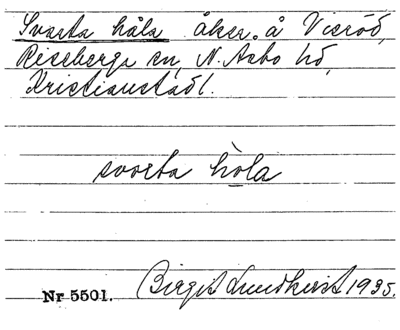 Svarta håla åker å Visröd,
Riseberga sn, N. Åsbo hd,
Kristianstad l.
svarta hola
Nr 5501. Birgit Lundkvist 1935.